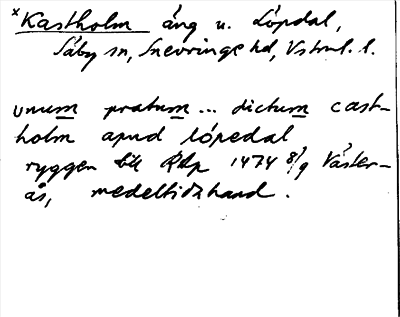 × Kastholm äng u. Löpdal,
Säby sn, Snevringe hd, Vstml. l.
unum pratum ... dictum cast-
holm apud löpedal
ryggen till RAp 1474 8/9 Väster-
ås, medeltidshand.